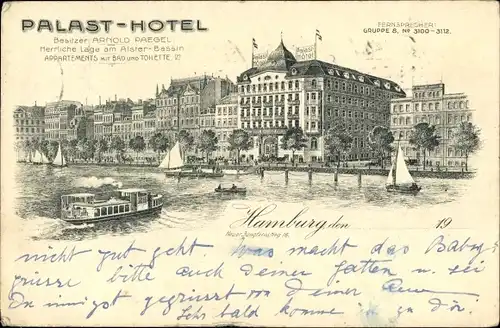 PALAST-HOTEL
Besitzer: ARNOLD PAEGEL
Herrliche Lage am Alster-Bassin
APPARTEMENTS MIT BAD UND TOILETTE
FERNSPRECHER:
GRUPPE 8, No 3100-3112.
Palast Hotel
Hamburg, den 19
Neuer Jungfernstieg 16.
nicht gut geht. Was macht das Baby?
grüsse bitte auch Deinen Gatten u. sei
Du innigst gegrüsst von Deiner
Sehr bald komme ich zu Dir.